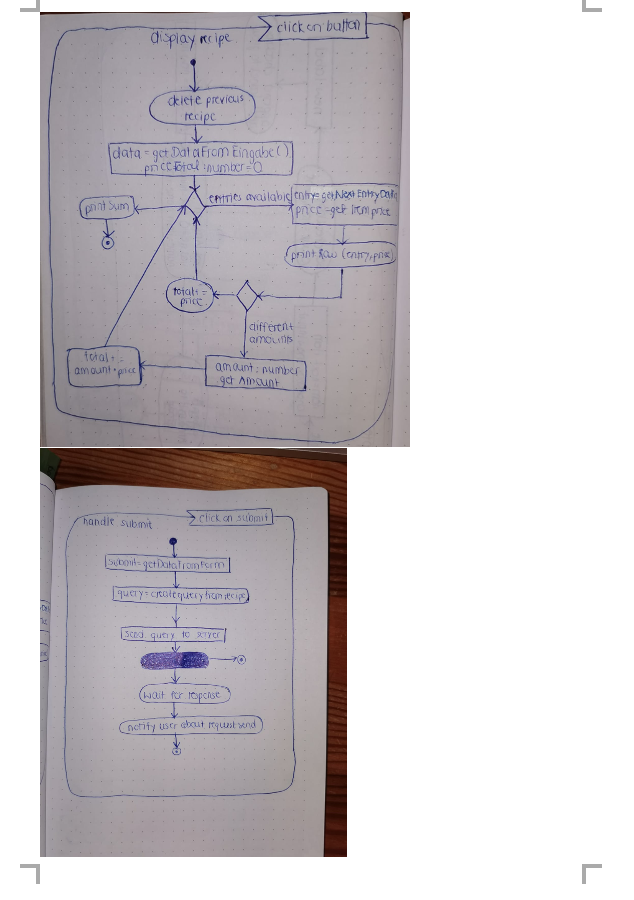 click on button
display recipe
delete previous
recipe
data = getDataFromEingabe()
priceTotal: number = 0
entries available
entry = getNextEntryData
price = get Item price
print Sum
print Row (entry, price
total + =
price
different
amounts
total + =
amount * price
amount : number
get Amount
handle submit
click on submit
submit = getDataFromForm
query = createqueryfromrecipe
send query to server
wait for response
notify user about request send